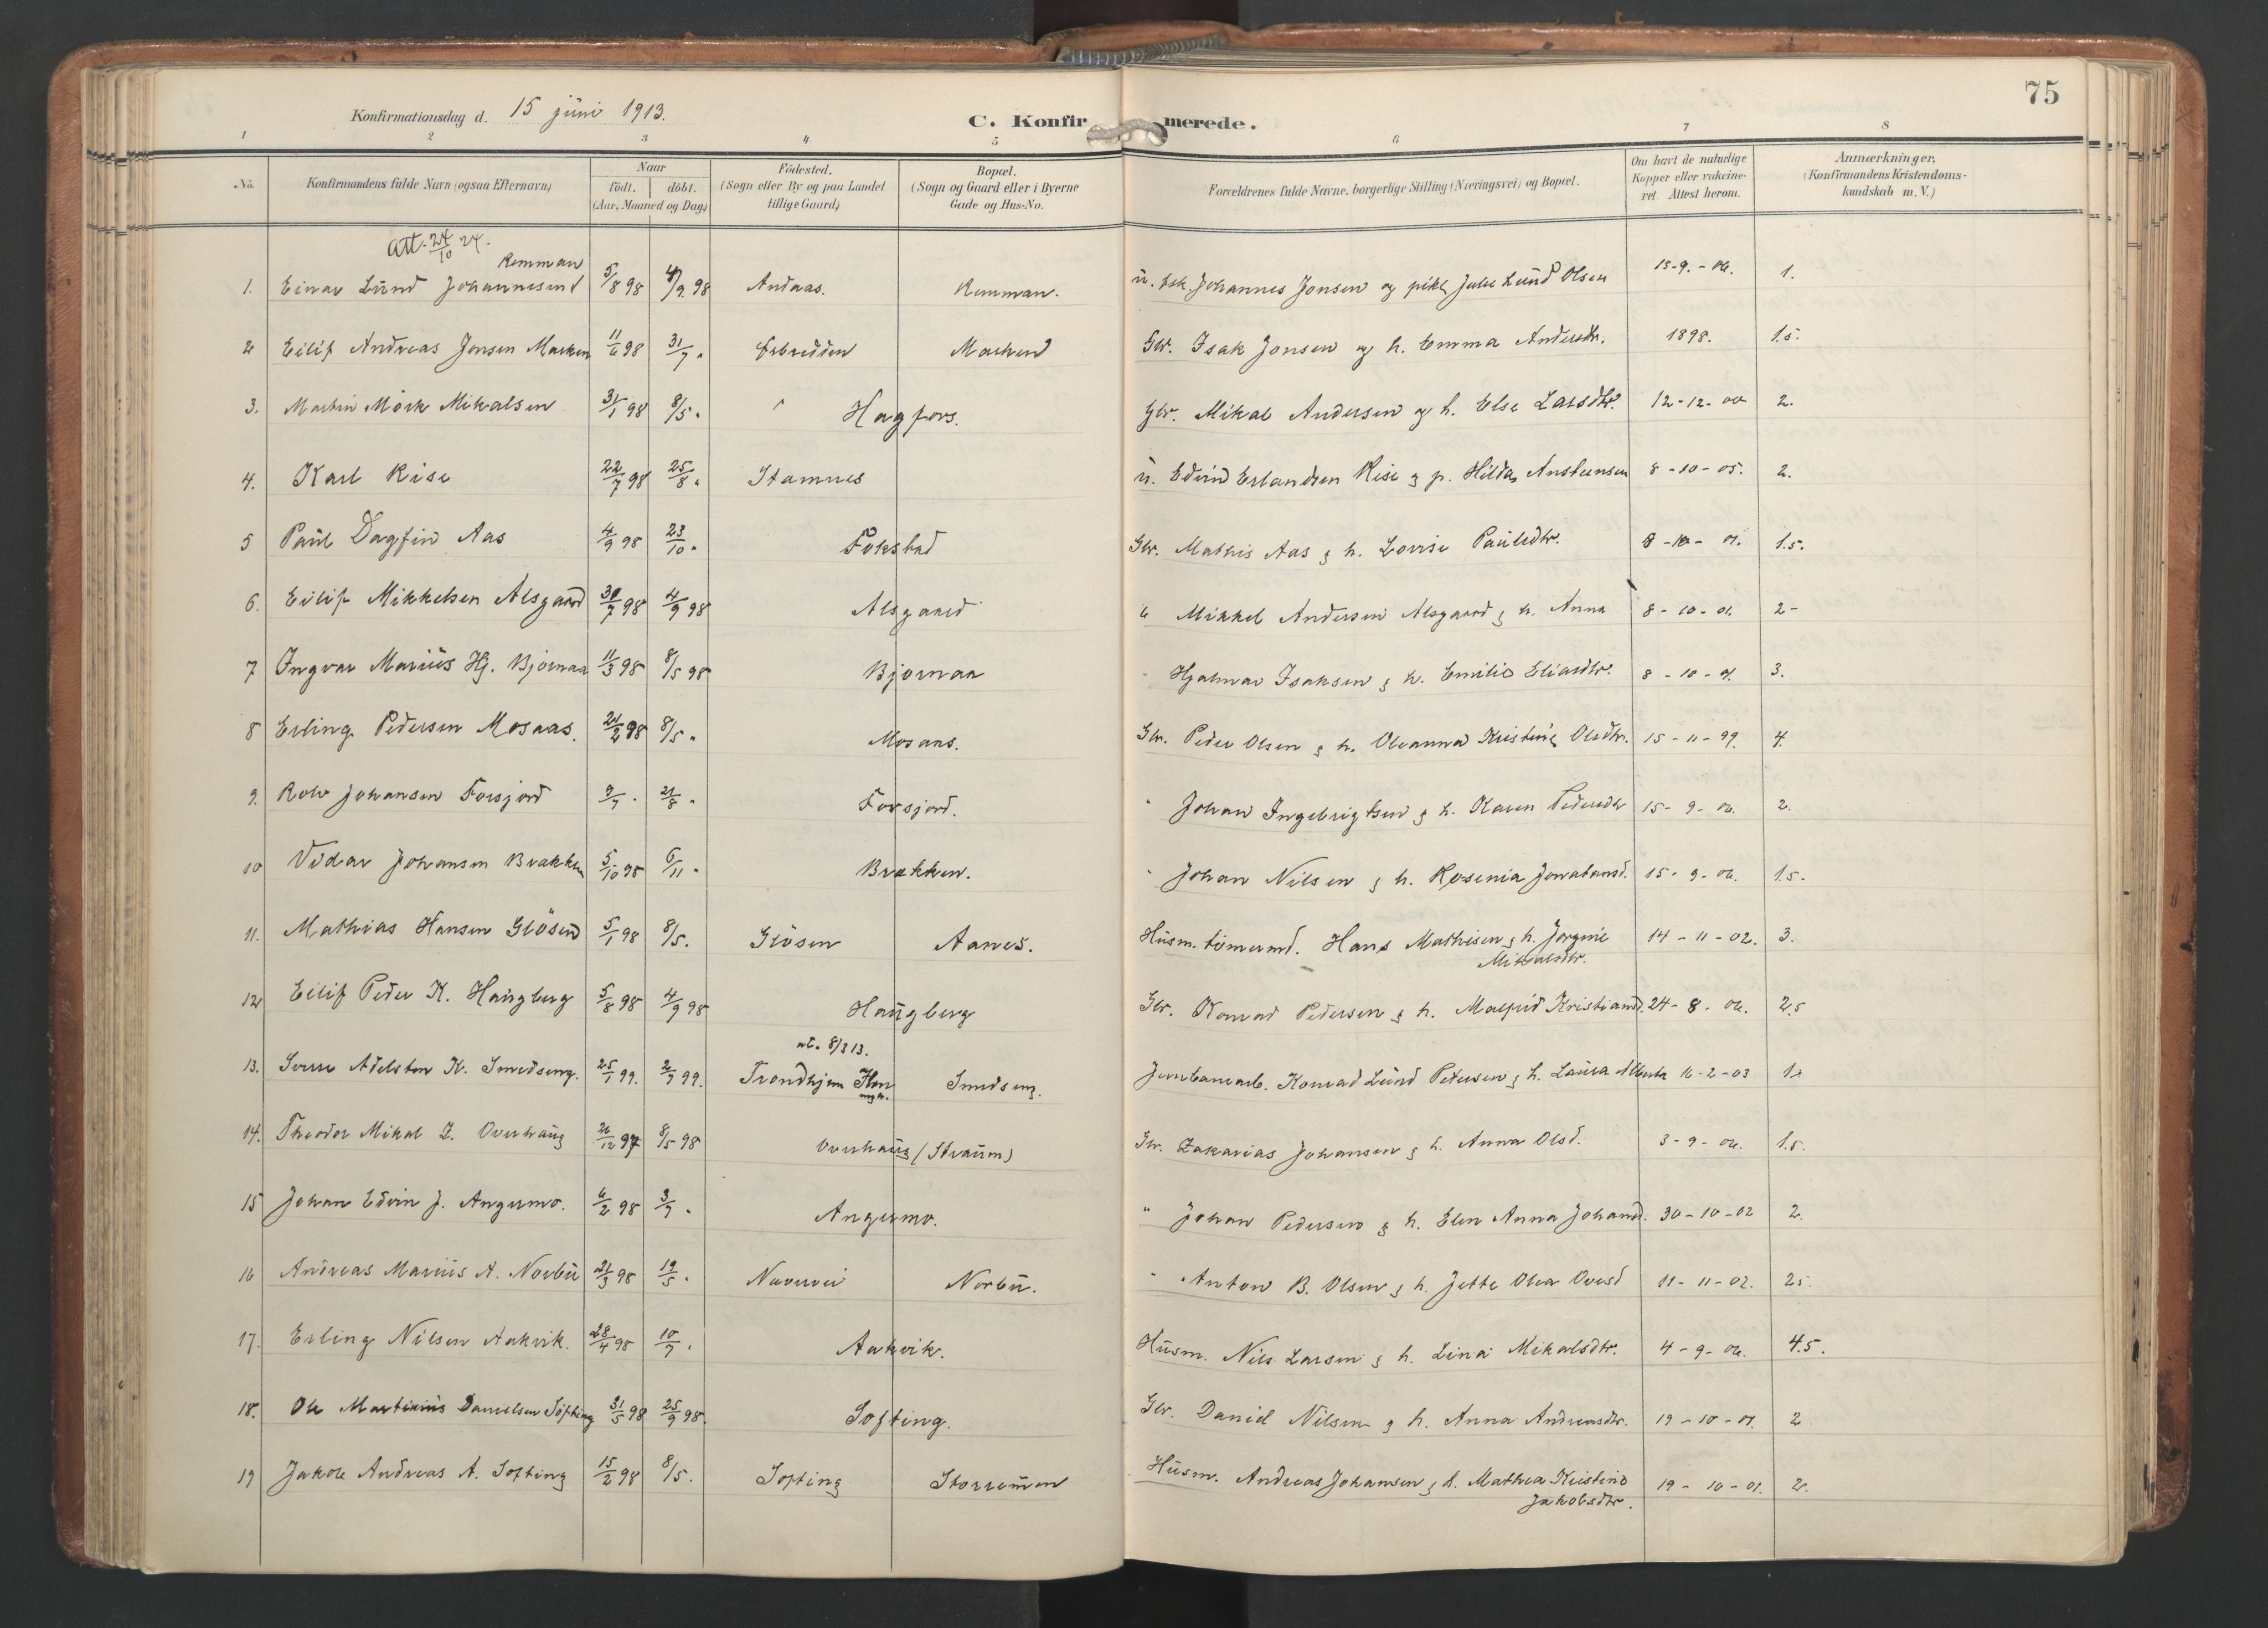 75
Konfirmationsdag d. 15 juni 1913.
C. Konfirmerede.
1 2 3 4 5 6 7 8
No. Konfirmandens fulde Navn (ogsaa Efternavn) Naar født. døbt. (Aar, Maaned og Dag) Fødested. (Sogn eller By og paa Landet tillige Gaard) Bopæl. (Sogn og Gaard eller i Byerne Gade og Hus-No. Forældrenes fulde Navne, borgerlige Stilling (Næringsvei) og Bopæl. Om havt de naturlige Kopper eller vakcineret Attest herom. Anmærkninger, (Konfirmandens Kristendomskundskab m. V.)
Att. 24/10 24.
Remman
1. Einar Lund Johannesen 5/8 98 4/9 98 Andaas. Remman. u. Johannes Jonsen og pike Julie Lund Olsen 15-9-06. 1.
2 Eilif Andreas Jonsen Marken 11/6 98 31/7 " Marken Gbr. Isak Jonsen og h. Emma Andersdtr. 1898. 1.5.
3. Martin Mörk Mikalsen 31/1 98 8/5 " Hagfors. Gbr. Mikal Andersen og h. Else Larsdtr. 12-12-00 2.
4. Karl Rise 22/7 98 25/8 " Stamnes u. Edvin Erlandsen Rise & p. Hilda Anstensen 8-10-05. 2.
5 Paul Dagfin Aas 4/9 98 23/10 " Fokstad Gbr. Mathis Aas & h. Lovise Paulsdtr. 8-10-01. 1.5.
6. Eilif Mikkelsen Alsgaard 31/7 98 4/9 98 Alsgaard " Mikkel Andersen Alsgaard & h. Anna 8-10-01. 2-
7 Ingvar Marius Hj. Bjornaa 11/3 98 8/5 98 Bjornaa " Hjalmar Isaksen & h. Emilie Eliasdtr. 8-10-01. 3.
8 Erling Pedersen Mosaas. 21/2 98 8/5 " Mosaas. Gbr. Peder Olsen & h. Oleanna Kristine Olsdtr. 15-11-99. 4.
9. Rolv Johansen Forsjord 9/7 " 21/8 " Forsjord. " Johan Ingebrigtsen & h. Karen Pedersdtr 15-9-06. 2.
10 Vidar Johansen Brækken 5/10 98 6/11 " Brækken. " Johan Nilsen & h. Rosenia Jonatansd. 15-9-06. 1.5.
11. Mathias Hansen Glösen 5/1 98 8/5. Glösen Aanes. Husm. tömmermd. Hans Mathisen & h. Jorgine 14-11-02. 3.
Mikalsdtr.
12 Eilif Peder K. Haugberg 5/8 98 4/9 98 Haugberg Gbr. Konrad Pedersen & h. Malfrid Kristiansd. 24-8-06. 2.5
at. 8/3 13.
13. Sverre Adelsten K. Smedseng. 25/1 99. 2/7 99. Trondhjem Smedseng. Jernbanearb. Konrad Lund Petersen & h. Laura Alberta 16-2-03 1.
14. Theodor Mikal Z. Overhaug 26/12 97 8/5 98 Overhaug (Straum) Gbr. Zakarias Johansen & h. Anna Olsd. 3-9-06. 1.5.
15 Johan Edvin J. Angermo. 6/2 98 3/7 " Angermo. " Johan Pedersen & h. Elen Anna Johansd. 30-10-02 2.
16 Andreas Marius A. Norbü 21/3 98 19/5 " Norbü. " Anton B. Olsen & h. Jette Olea Ovesd 11-11-02. 2.5.
17. Erling Nilsen Aakvik. 28/4 98 10/7 " Aakvik. Husm. Nils Larsen & h. Lina Mikalsdtr. 4-9-06. 4.5.
18. Ole Martinius Danielsen Söfting 31/5 98 25/9 98. Softing. Gbr. Daniel Nilsen & h. Anna Andreasdtr. 19-10-01. 2
19 Jakob Andreas A. Softing 15/2 98 8/5. Softing Storremen Husm. Andreas Johansen & h. Mathea Kristine 19-10-01. 2.
Jakobsdtr.